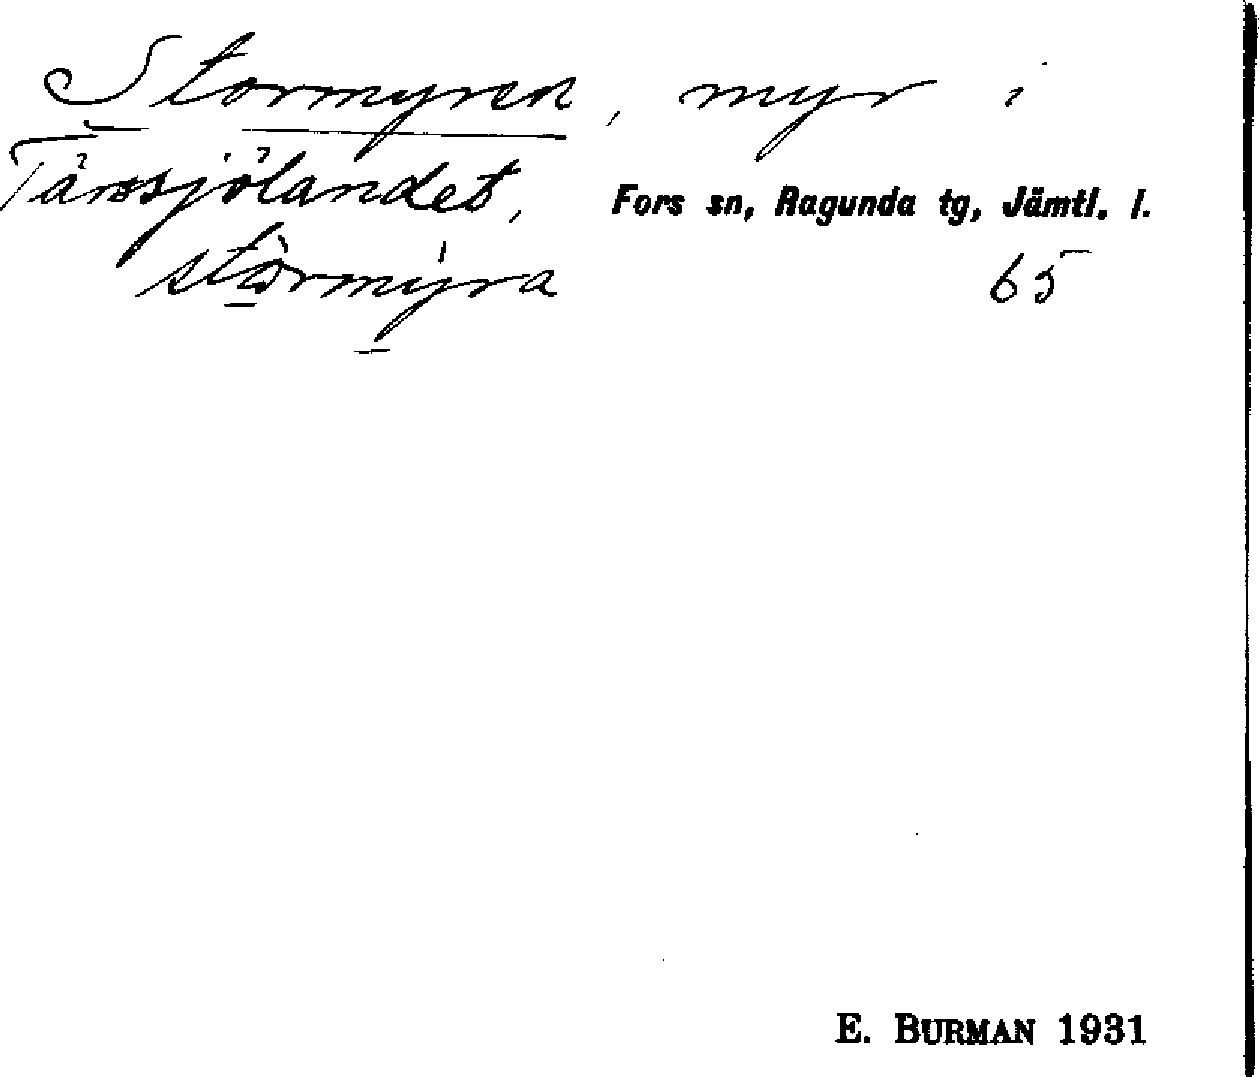 Stormyren, myr i
Tärnsjölandet, Fors sn, Ragunda tg, Jämtl. l.
stòrmýra 65
E. BURMAN 1931